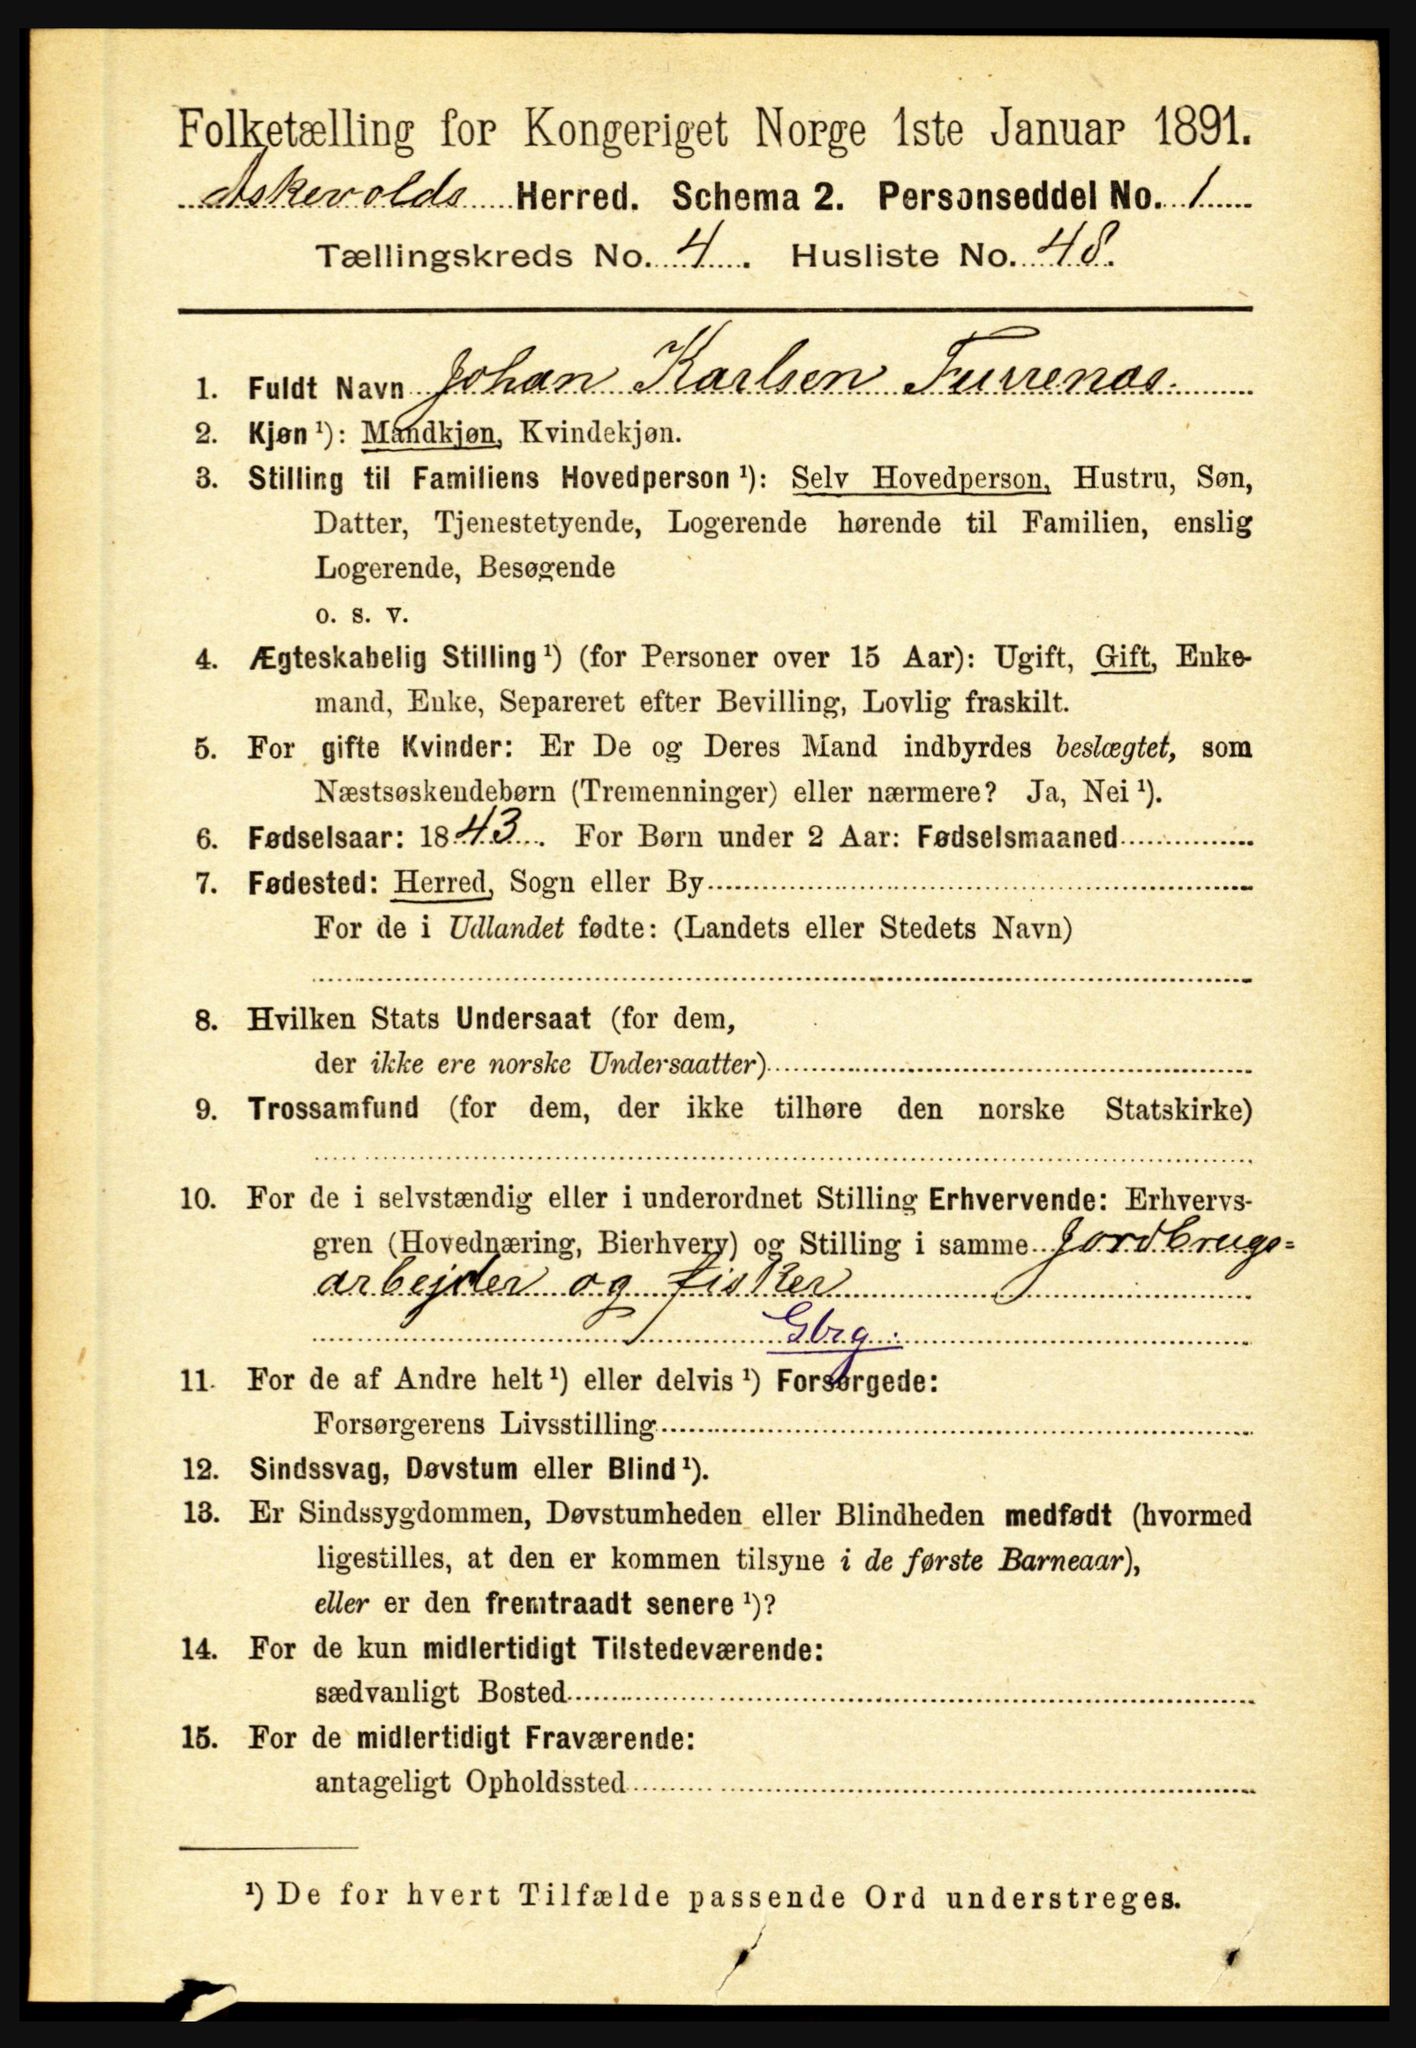 Folketælling for Kongeriget Norge 1ste Januar 1891.
Askevolds Herred. Schema 2. Personseddel No. 1
Tællingskreds No. 4. Husliste No. 48.
1. Fuldt Navn Johan Karlsen Furrenæs.
2. Kjøn ¹): Mandkjøn, Kvindekjøn.
3. Stilling til Familiens Hovedperson ¹): Selv Hovedperson, Hustru, Søn,
Datter, Tjenestetyende, Logerende hørende til Familien, enslig
Logerende, Besøgende
o. s. v.
4. Ægteskabelig Stilling ¹) (for Personer over 15 Aar): Ugift, Gift, Enke-
mand, Enke, Separeret efter Bevilling, Lovlig fraskilt.
5. For gifte Kvinder: Er De og Deres Mand indbyrdes beslægtet, som
Næstsøskendebørn (Tremenninger) eller nærmere? Ja, Nei ¹).
6. Fødselsaar: 1843. For Børn under 2 Aar: Fødselsmaaned
7. Fødested: Herred, Sogn eller By
For de i Udlandet fødte: (Landets eller Stedets Navn)
8. Hvilken Stats Undersaat (for dem,
der ikke ere norske Undersaatter)
9. Trossamfund (for dem, der ikke tilhøre den norske Statskirke)
10. For de i selvstændig eller i underordnet Stilling Erhvervende: Erhvervs-
gren (Hovednæring, Bierhverv) og Stilling i samme Jordbrugs=
arbejder og fisker
Gbrg.
11. For de af Andre helt ¹) eller delvis ¹) Forsørgede:
Forsørgerens Livsstilling
12. Sindssvag, Døvstum eller Blind ¹).
13. Er Sindssygdommen, Døvstumheden eller Blindheden medfødt (hvormed
ligestilles, at den er kommen tilsyne i de første Barneaar),
eller er den fremtraadt senere ¹)?
14. For de kun midlertidigt Tilstedeværende:
sædvanligt Bosted
15. For de midlertidigt Fraværende:
antageligt Opholdssted
¹) De for hvert Tilfælde passende Ord understreges.